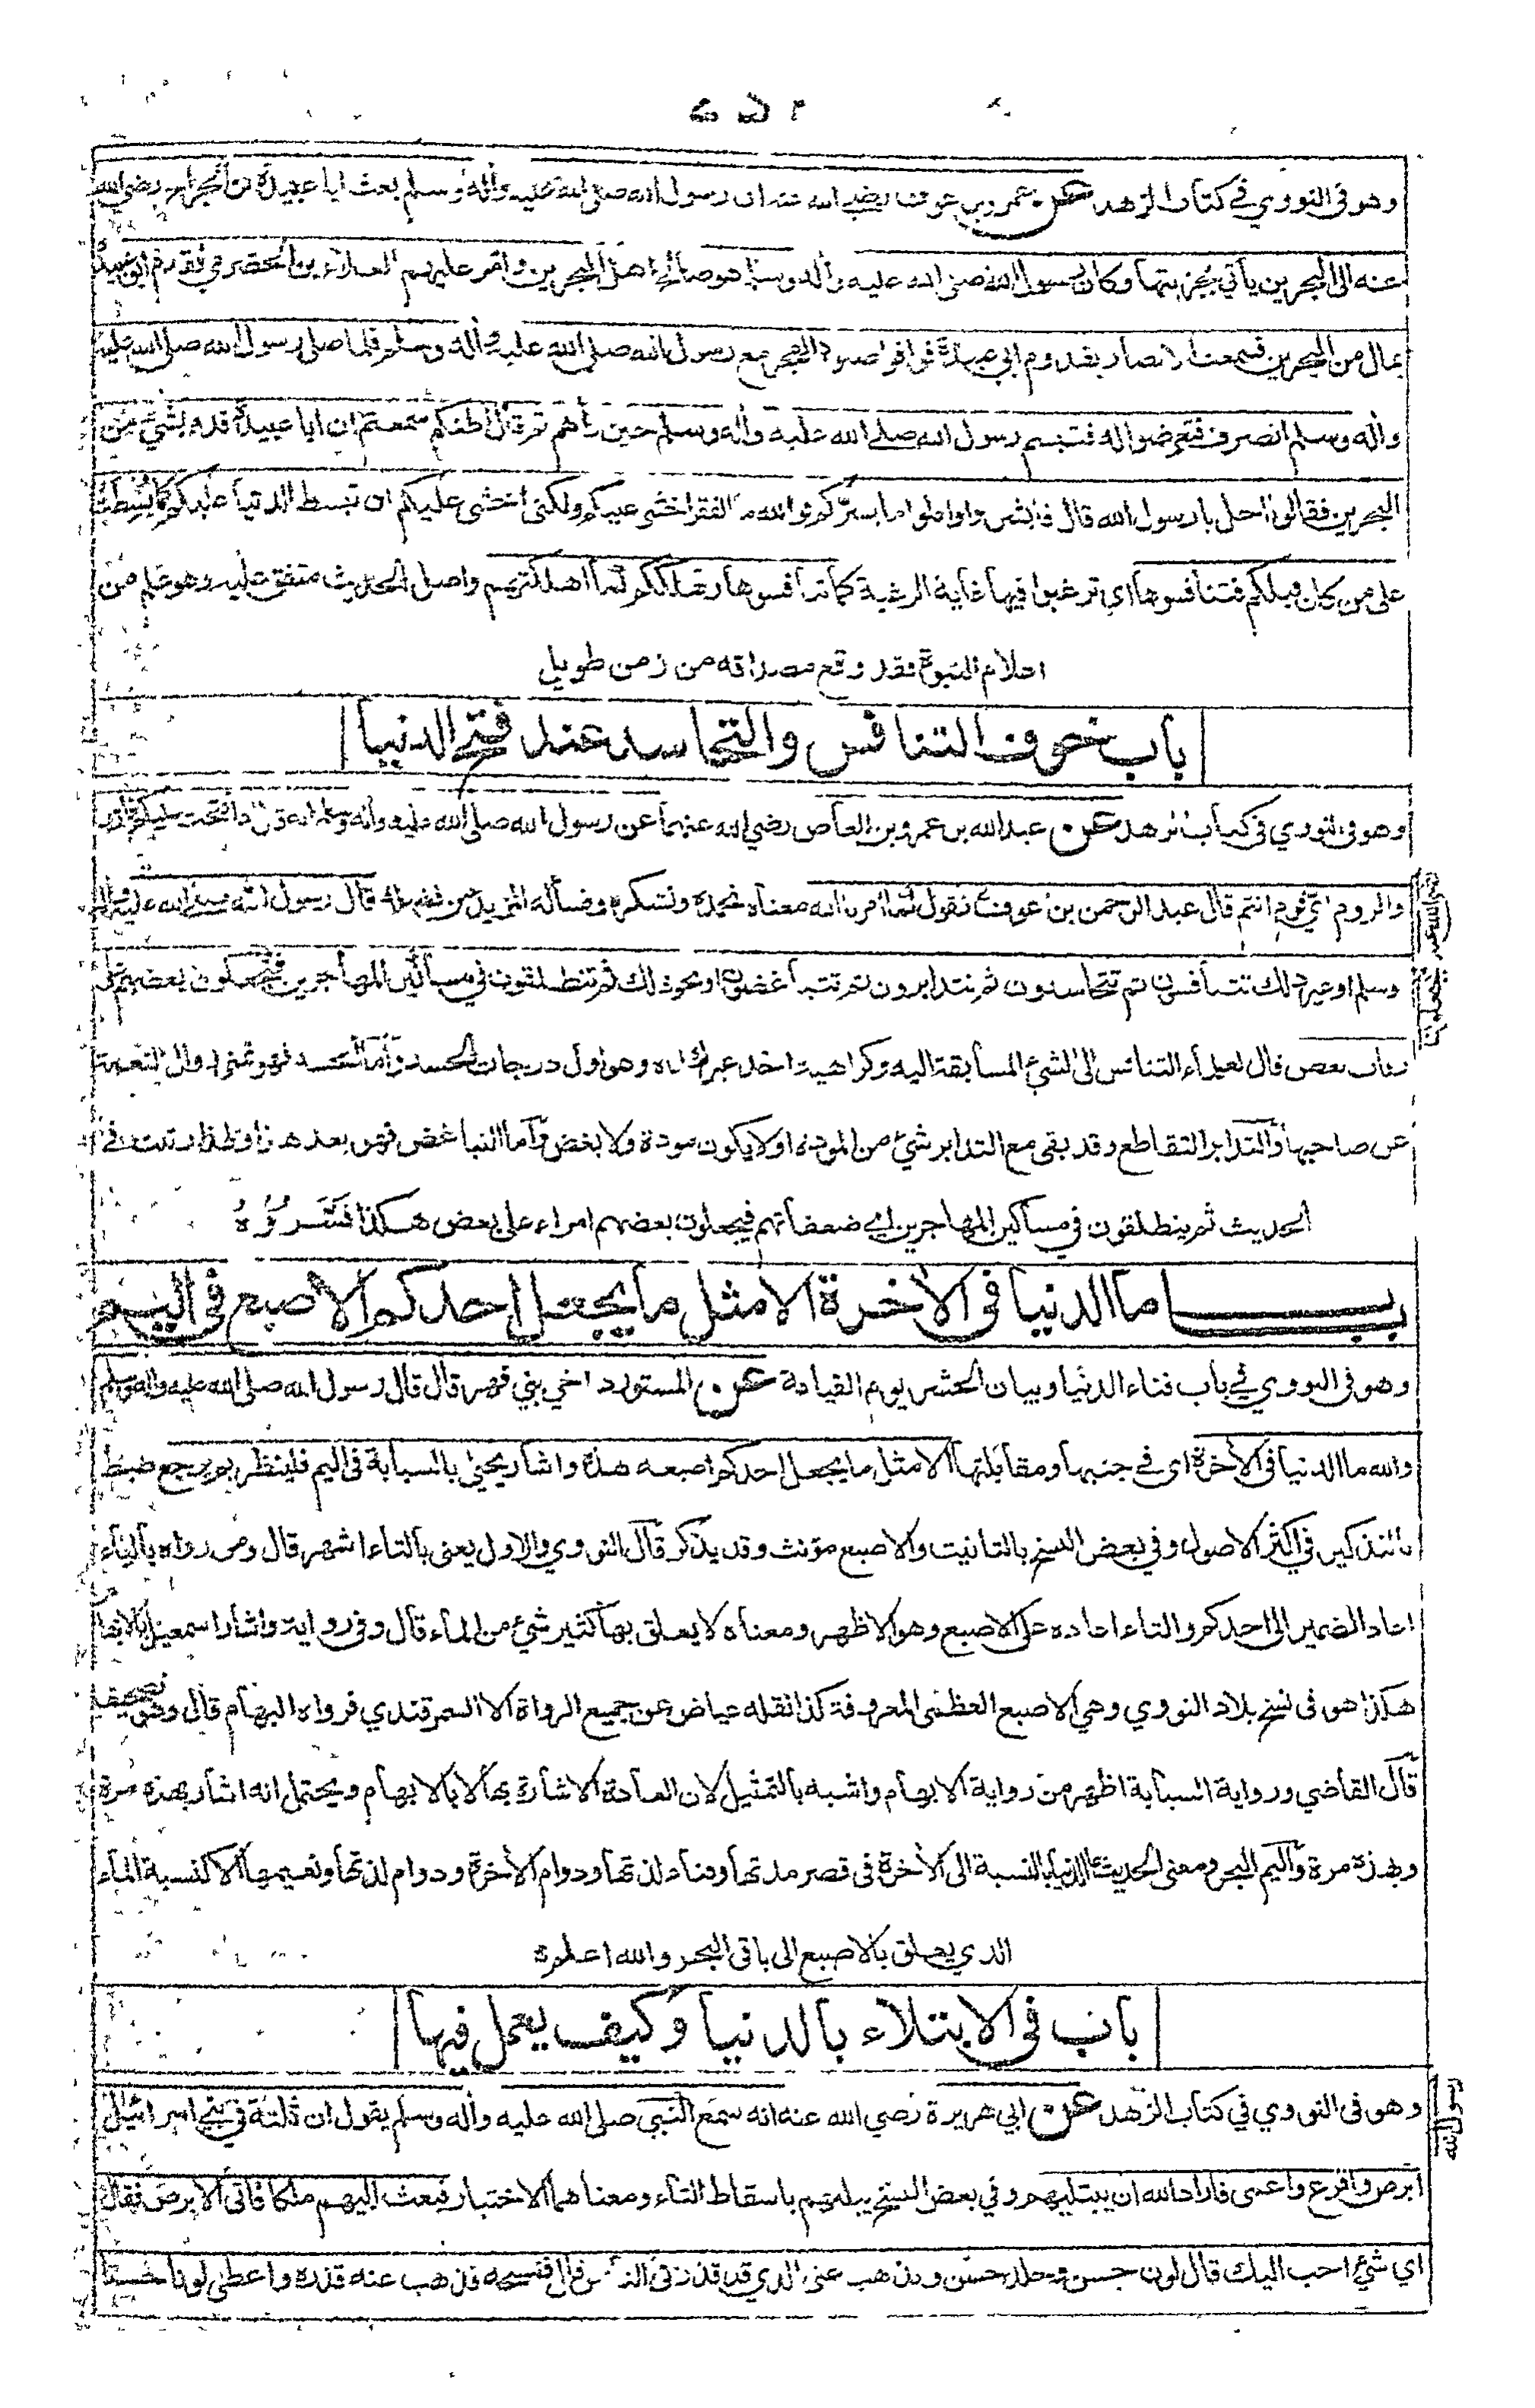 وهو في النووي في كتاب الزهد عن عمرو بن عوف رضي الله عنه ان رسول الله صلى الله عليه واله وسلم بعث ابا عبيدة بن الجراح رضي الله
عنه الى البحرين يأتي بجزيتها وكان رسول الله صلى الله عليه واله وسلم هو صالح اهل البحرين وامر عليهم العلاء بن الحضرمي فقدم ابو عبيدة
بمال من البحرين فسمعت الانصار بقدوم ابي عبيدة فوافوا صلوة الفجر مع رسول الله صلى الله عليه واله وسلم فلما صلى رسول الله صلى الله عليه
واله وسلم انصرف فتعرضوا له فتبسم رسول الله صلى الله عليه واله وسلم حين رأهم ثم قال اظنكم سمعتم ان ابا عبيدة قدم بشيء من
البحرين فقالوا اجل يا رسول الله قال فابشروا واملوا ما يسركم فوالله ما الفقر اخشى عليكم ولكني اخشى عليكم ان تبسط الدنيا عليكم كما بسطت
على من كان قبلكم فتنافسوها اي ترغبوا فيها غاية الرغبة كما تنافسوها وتهلككم كما اهلكتهم واصل الحديث متفق عليه وهو علم من
اعلام النبوة فقد وقع مصداقه من زمن طويل
باب خوف التنافس والتحاسد عند فتح الدنيا
وهو في النووي في كتاب الزهد عن عبد الله بن عمرو بن العاص رضي الله عنهما عن رسول الله صلى الله عليه واله وسلم انه قال اذا فتحت عليكم فارس
والروم اي قوم انتم قال عبد الرحمن بن عوف نقول كما امرنا الله معناه نحمده ونشكره ونسأله المزيد من فضله قال رسول الله صلى الله عليه واله
وسلم او غير ذلك تتنافسون ثم تتحاسدون ثم تتدابرون ثم تتباغضون او نحو ذلك ثم تنطلقون في مساكين المهاجرين فتجعلون بعضهم على
رقاب بعض قال العلماء التنافس الى الشيء المسابقة اليه وكراهية اخذ غيرك اياه وهو اول درجات الحسد واما الحسد فهو تمني زوال النعمة
عن صاحبها والتدابر التقاطع وقد بقي مع التدابر شيء من المودة او لا يكون مودة ولا بغض واما التباغض فهو بعد هذا ولهذا رتبت في
الحديث ثم ينطلقون في مساكين المهاجرين اي ضعفائهم فيجعلون بعضهم امراء على بعض هكذا فسروه
باب ما الدنيا في الأخرة الا مثل ما يجعل احدكم الاصبع في اليم
وهو في النووي في باب فناء الدنيا وبيان الحشر يوم القيامة عن المستورد اخي بني فهر قال قال رسول الله صلى الله عليه واله وسلم
والله ما الدنيا في الأخرة اي في جنبها ومقابلتها الا مثل ما يجعل احدكم اصبعه هذه واشار يحيى بالسبابة في اليم فلينظر بم يرجع ضبط
بالتذكير في اكثر الاصول وفي بعض النسخ بالتانيث والاصبع مؤنث وقد يذكر قال النووي والاول يعني بالتاء اشهر قال ومن رواه بالياء
اعاد الضمير الى احدكم والتاء اعاده على الاصبع وهو الاظهر ومعناه لا يعلق بها كثير شيء من الماء قال وفي رواية واشار اسمعيل بالابهام
هكذا هو في نسخ بلاد النووي وهي الاصبع العظمى المعروفة كذا نقله عياض عن جميع الرواة الا السمرقندي فرواه البهام قال وهو تصحيف
قال القاضي ورواية السبابة اظهر من رواية الابهام واشبه بالتمثيل لان العادة الاشارة بها لا بالابهام ويحتمل انه اشار بهذه مرة
وبهذه مرة واليم البحر ومعنى الحديث ما الدنيا بالنسبة الى الأخرة في قصر مدتها وفناء لذتها ودوام الأخرة ودوام لذتها ونعيمها الا كنسبة الماء
الذي يعلق بالاصبع الى باقي البحر والله اعلم
باب في الابتلاء بالدنيا وكيف يعمل فيها
وهو في النووي في كتاب الزهد عن ابي هريرة رضي الله عنه انه سمع النبي صلى الله عليه واله وسلم يقول ان ثلثة في بني اسرائيل
رسول الله
ابرص واقرع واعمى فاراد الله ان يبتليهم وفي بعض النسخ يبليهم باسقاط التاء ومعناهما الاختبار فبعث اليهم ملكا فاتى الابرص فقال
اي شيء احب اليك قال لون حسن وجلد حسن ويذهب عني الذي قد قذرني الناس قال فمسحه فذهب عنه قذره واعطي لونا حسنا